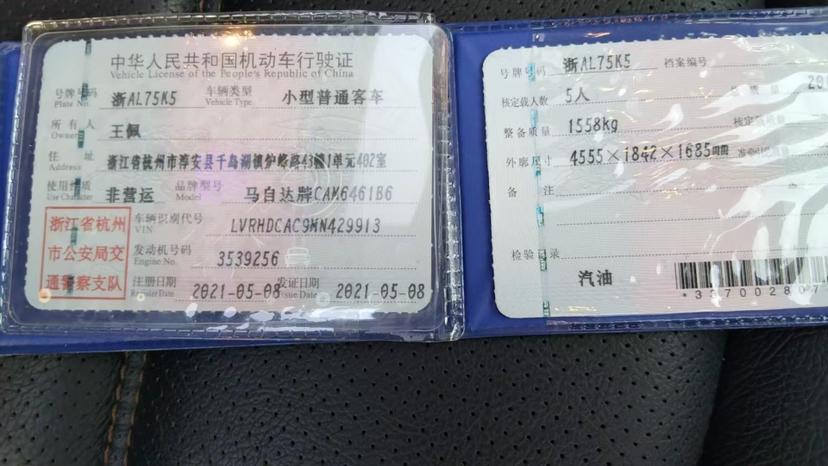 中华人民共和国机动车行驶证
Vehicle License of the People's Republic of China
号牌号码 浙AL75K5 车辆类型 小型普通客车
Plate No. Vehicle Type
所有人 王佩
Owner
住址 浙江省杭州市淳安县千岛湖镇炉峰路43幢1单元402室
使用性质 非营运 品牌型号 马自达牌CAM6461B6
Use Character Model
浙江省杭州
市公安局交
通警察支队
车辆识别代号 LVRHDCAC9MN429913
VIN
发动机号码 3539256
Engine No.
注册日期 2021-05-08 发证日期 2021-05-08
Register Date Issue Date
号牌号码 浙AL75K5 档案编号
核定载人数 5人 总质量 20
整备质量 1558Kg 核定
外廓尺寸 4555×1842×1685mm
备注
检验记录
汽油
*33700280